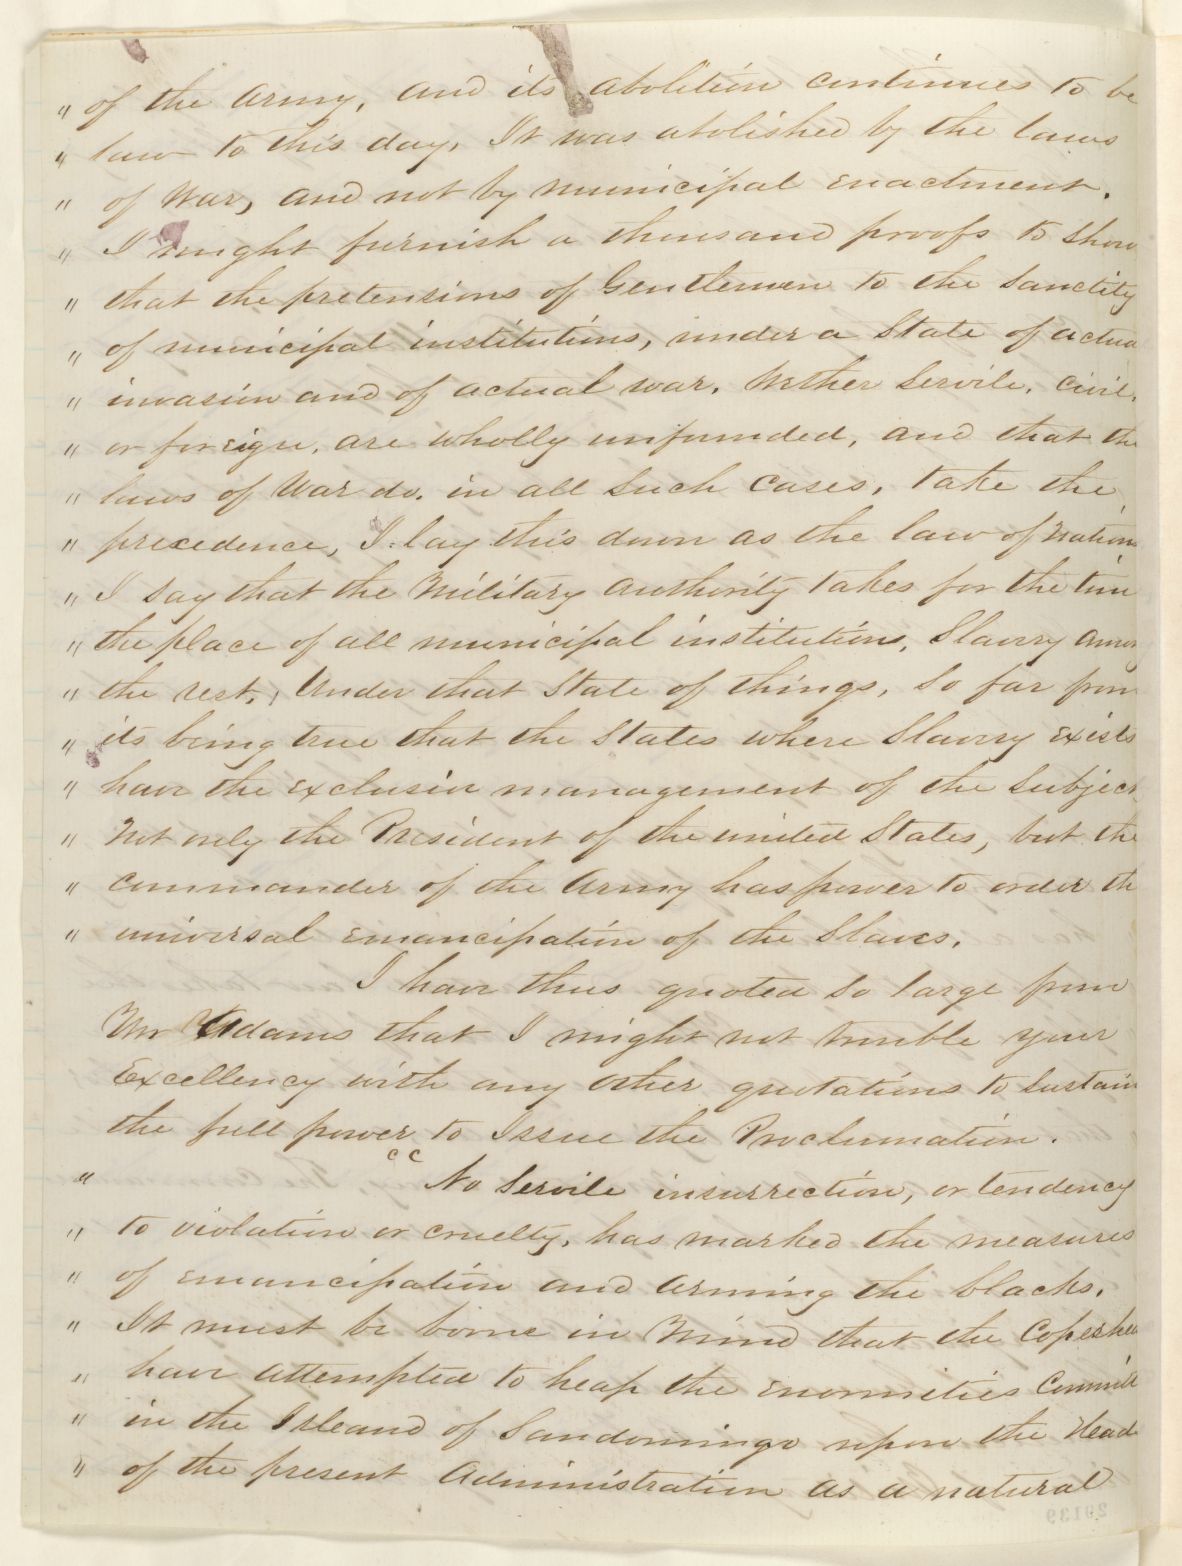 " of the Army, and its abolition continues to be
" law to this day, It was abolished by the laws
" of War, and not by municipal enactment.
" I might furnish a thousand proofs to show
" that the pretensions of Gentlemen to the sanctity
" of municipal institutions, under a State of actua
" invasion and of actual war. Wether Servile. civil.
" or foreign. are wholly unfounded, and that the
" laws of War do. in all such cases, take the
" precedence, I lay this down as the law of Nations
" I say that the Military authority takes for the tim
" the place of all municipal institutions, Slavery amon
" the rest, Under that State of things, so far from
" its being true that the States where Slavery exists
" have the exclusive management of the Subject
" Not only the President of the united States, but the
" Commander of the Army has power to order th
" universal emancipation of the Slaves.
I have thus quoted so large from
Mr Adams that I might not trouble your
Excellency with any other quotations to Sustain
the full power to Issue the Proclamation.
" " No Servile insurrection, or tendency
" to violation or cruelty, has marked the measures
" of emancipation and arming the blacks.
" It must be borne in Mind that the Copeshea
" have attempted to heap the enormities Committ
" in the Island of Sandomingo upon the Head
" of the present Administration as a natural
20139